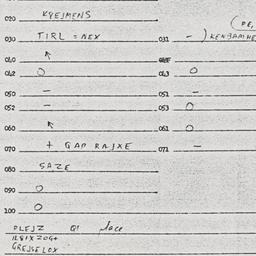 020 KYEJMENS
(DE,
030 TIRL = NEX 031 - ) KENBAMHE
040
042 O 043 O
050 - 051 -
052 - 053 O
060 061 O
070 + GAD RAJXE 071 -
080 SAZE
090 O
100 O
PLEJZ place
GREJSELOX